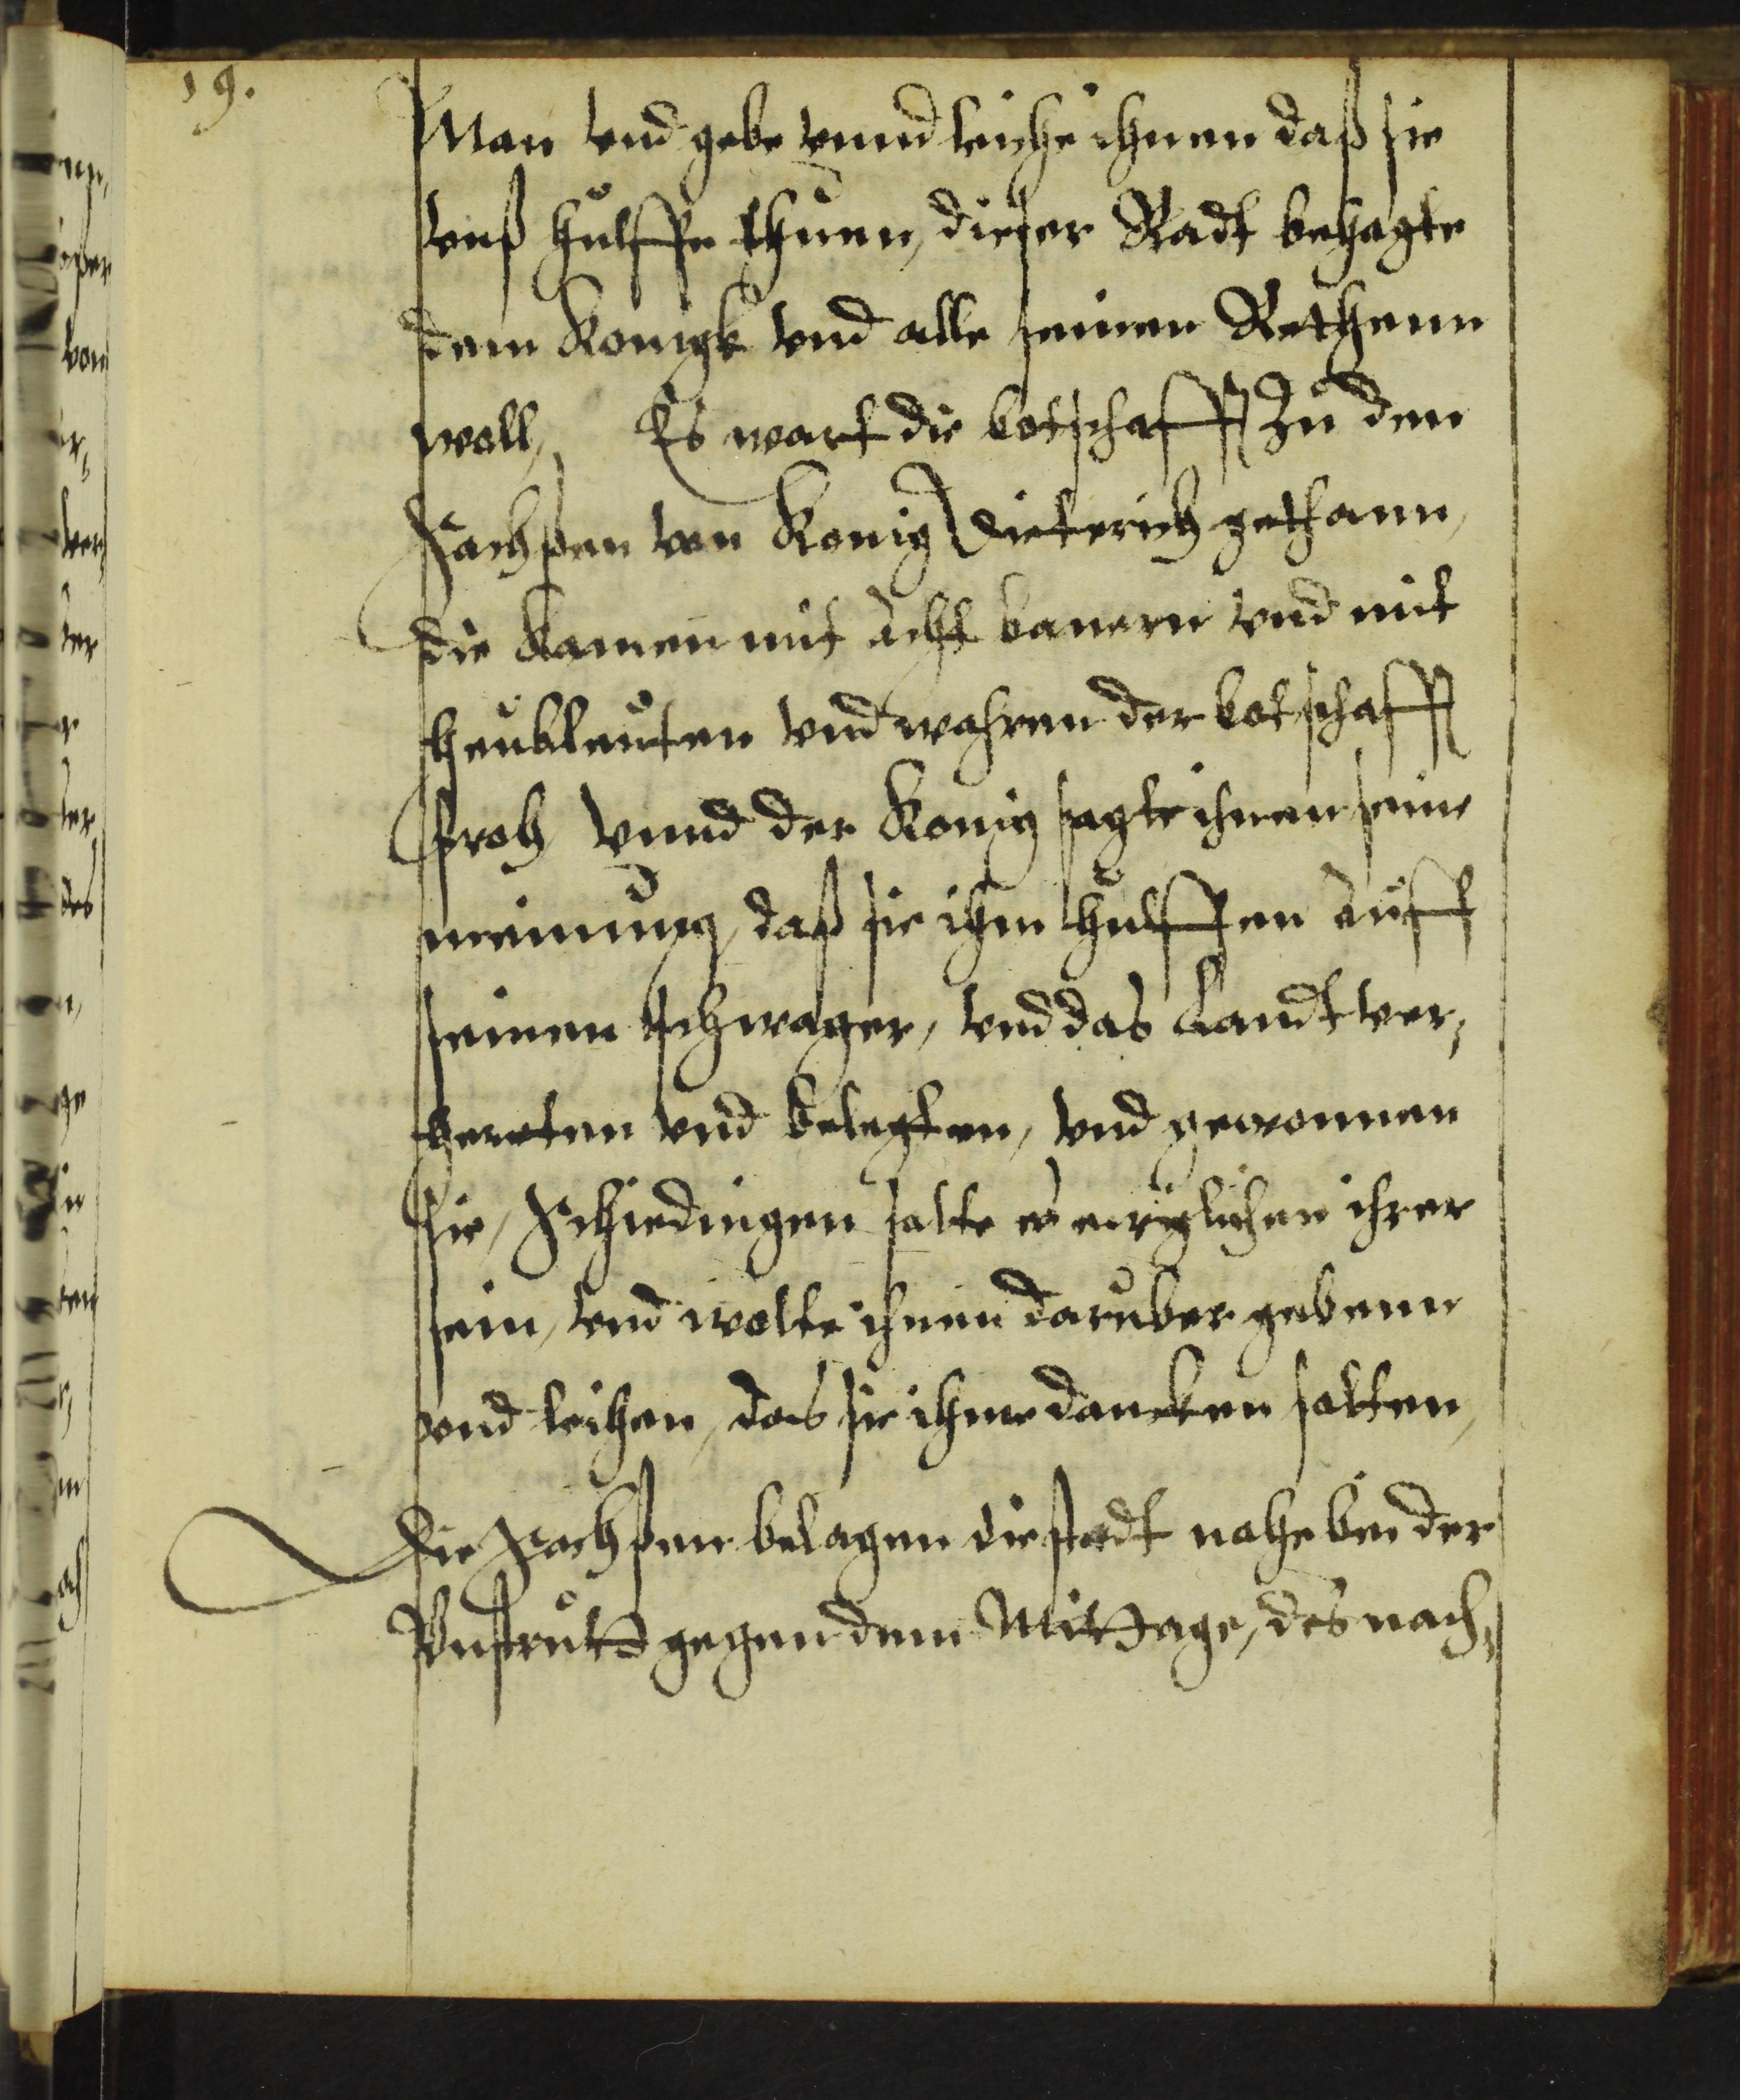 19.
Man vnd gebe vnnd leiche ihnen daß sie
vnß hulffe thuen, dieser Radt behagte
dem Konigk vnd alle seinen Rethenn
woll, Es wart die botschafft Zu den
Sachßen von Konig Dieterich gethann,
die kamen mit Acht banern vnd mit
heubleuten vnd wahren der botschafft
froh vnnd der Konig sagte ihnen seine
meinung, daß sie ihm hulffen auff
seinen schwager, vnd das Landt ver,
hereten vnd belegten, vnd gewonnen
sie, Schiedingen solte ewiglichen ihrer
sein, vnd wolte ihnen daruber gebenn
vnd leihen, das sie ihme dancken solten,
Die Sachßenn belagen die stadt nahe bei der
Vnstrutt gegen dem Mittage, des nach,